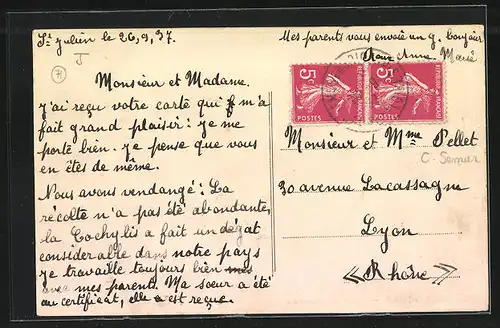 St Julien le 26, 9, 37.
Monsieur et Madame.
J'ai reçu votre carte qui m'a
fait grand plaisir: Je me
porte bien. Je pense que vous
en êtes de même.
Nous avons vendangé: La
récolte n'a pas été abondante,
la Cochylis a fait un dégat
considerable dans notre pays
Je travaille toujours bien mes
avec mes parent. Ma sœur a été
au certificat, elle a est reçue.
Mes parents vous envoie un g. bonjour
Anne Marie
5c
5c
REPUBLIQUE FRANÇAISE
POSTES
POSTES
Monsieur et Mme Pellet
C. Semur
30 avenue Lacassagne
Lyon
« Rhône »